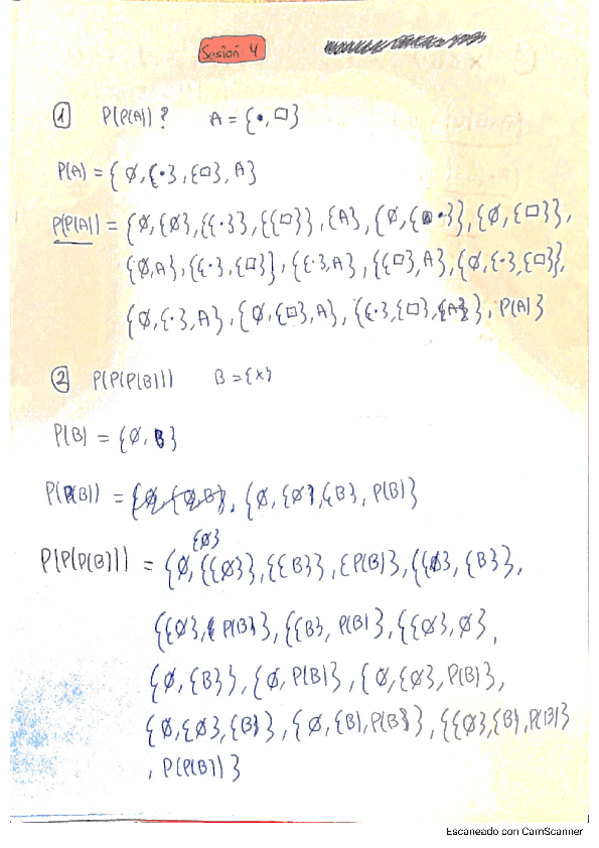 Sesión 4
① P(P(A))? A = {•, □}
P(A) = {∅, {•}, {□}, A}
P(P(A)) = {∅, {∅}, {{•}}, {{□}}, {A}, {∅, {•}}, {∅, {□}},
{∅, A}, {{•}, {□}}, {{•}, A}, {{□}, A}, {∅, {•}, {□}},
{∅, {•}, A}, {∅, {□}, A}, {{•}, {□}, {A}}, P(A)}
② P(P(P(B))) B = {x}
P(B) = {∅, B}
P(P(B)) = {∅, {∅}, {B}, P(B)}
{∅}
P(P(P(B))) = {∅, {{∅}}, {{B}}, {P(B)}, {{∅}, {B}},
{{∅}, P(B)}, {{B}, P(B)}, {{∅}, ∅},
{∅, {B}}, {∅, P(B)}, {∅, {∅}, P(B)},
{∅, {∅}, {B}}, {∅, {B}, P(B)}, {{∅}, {B}, P(B)}
, P(P(B))}
Escaneado con CamScanner